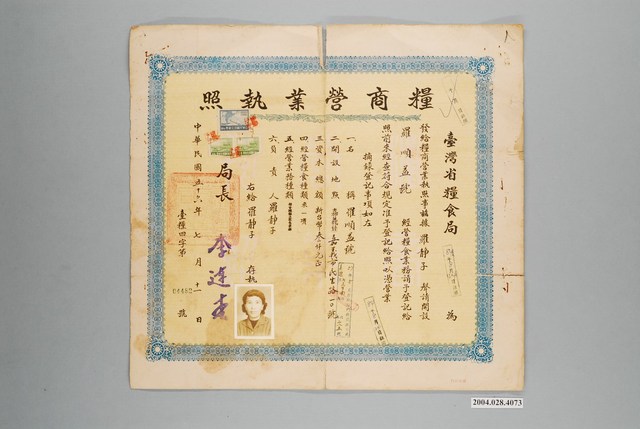 糧商營業執照
臺灣省糧食局 為
發給糧商營業執照事茲據 羅靜子 聲請開設
羅順益號 經營糧食業務請予登記給
照前來經查符合規定准予登記給照以憑營業
摘錄登記事項如左
一名稱 羅順益號
二開設地點 嘉義市民生路一〇號
三資本總額 新台幣叁仟元正
四經營糧食種類 米一項
五經營業務種類
六負責人 羅靜子
右給 羅靜子 存執
局長 李連春
中華民國五十六年七月十一日
臺糧四字第 號
2004.028.4073